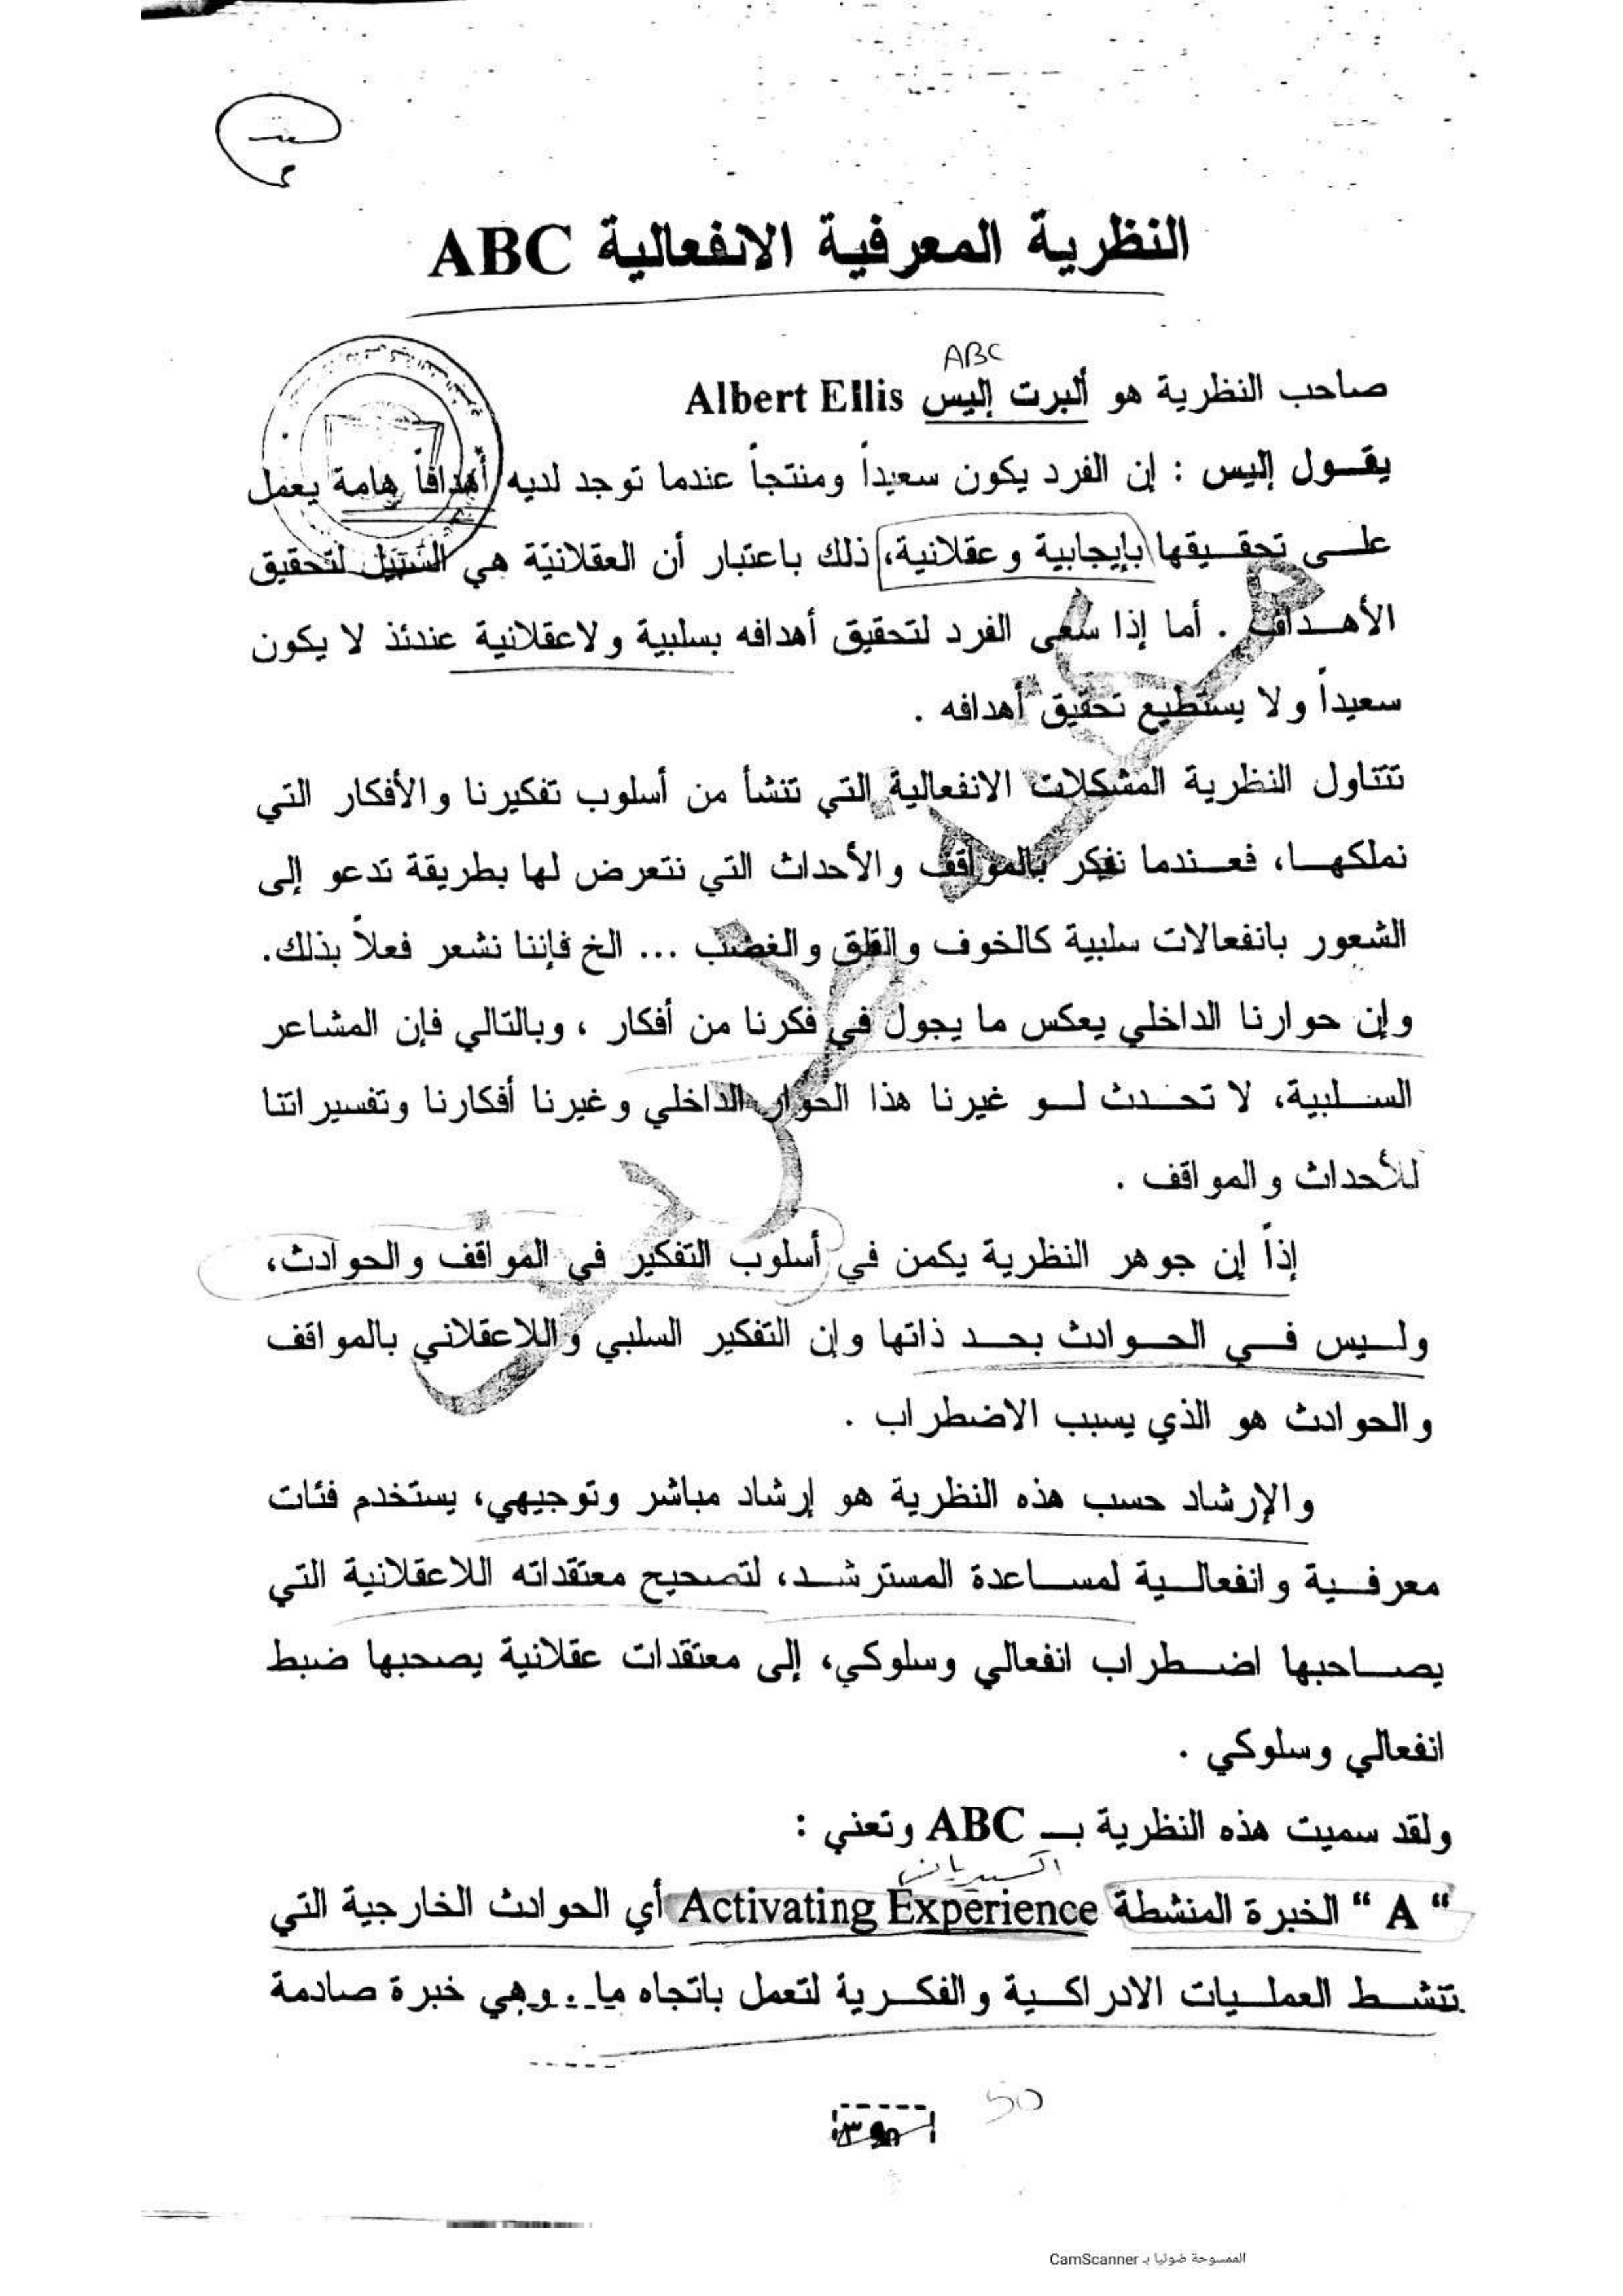 النظرية المعرفية الانفعالية ABC
ABC
صاحب النظرية هو ألبرت إليس Albert Ellis
يقول إليس : إن الفرد يكون سعيداً ومنتجاً عندما توجد لديه أهدافاً هامة يعمل
على تحقيقها بإيجابية وعقلانية، ذلك باعتبار أن العقلانية هي السبيل لتحقيق
الأهداف . أما إذا سعى الفرد لتحقيق أهدافه بسلبية ولاعقلانية عندئذ لا يكون
سعيداً ولا يستطيع تحقيق أهدافه .
تتناول النظرية المشكلات الانفعالية التي تنشأ من أسلوب تفكيرنا والأفكار التي
نملكها، فعندما نفكر بالمواقف والأحداث التي نتعرض لها بطريقة تدعو إلى
الشعور بانفعالات سلبية كالخوف والقلق والغضب ... الخ فإننا نشعر فعلاً بذلك.
وإن حوارنا الداخلي يعكس ما يجول في فكرنا من أفكار ، وبالتالي فإن المشاعر
السلبية، لا تحدث لو غيرنا هذا الحوار الداخلي وغيرنا أفكارنا وتفسيراتنا
للأحداث والمواقف .
إذاً إن جوهر النظرية يكمن في أسلوب التفكير في المواقف والحوادث،
وليس في الحوادث بحد ذاتها وإن التفكير السلبي واللاعقلاني بالمواقف
والحوادث هو الذي يسبب الاضطراب .
والإرشاد حسب هذه النظرية هو إرشاد مباشر وتوجيهي، يستخدم فئات
معرفية وانفعالية لمساعدة المسترشد، لتصحيح معتقداته اللاعقلانية التي
يصاحبها اضطراب انفعالي وسلوكي، إلى معتقدات عقلانية يصحبها ضبط
انفعالي وسلوكي .
ولقد سميت هذه النظرية بـ ABC وتعني :
اكسبريان
" A " الخبرة المنشطة Activating Experience أي الحوادث الخارجية التي
تنشط العمليات الادراكية والفكرية لتعمل باتجاه ما . وهي خبرة صادمة
50
الممسوحة ضوئيا بـ CamScanner